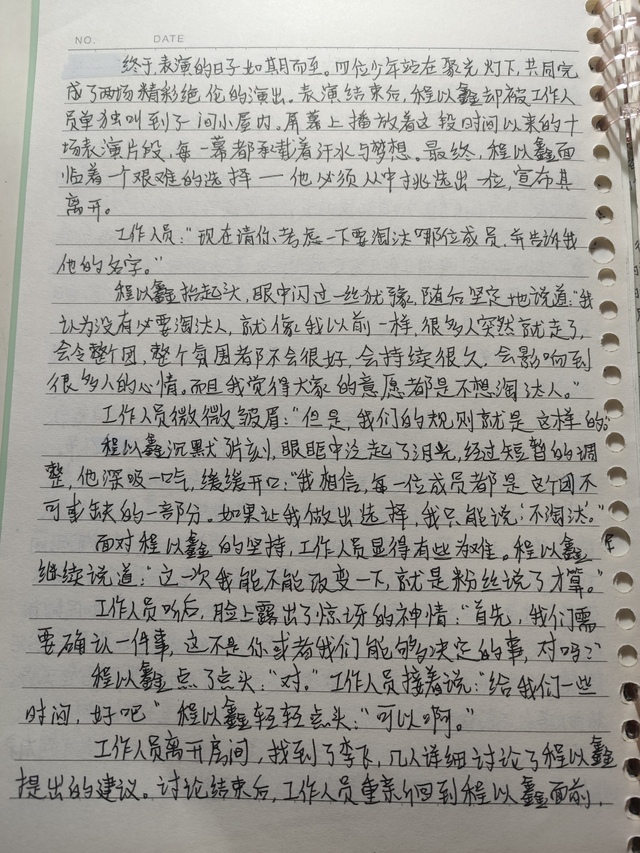 NO.
DATE
终于,表演的日子如期而至。四位少年站在聚光灯下,共同完
成了两场精彩绝伦的演出。表演结束后,程以鑫却被工作人
员单独叫到了一间小屋内。屏幕上播放着这段时间以来的十
场表演片段,每一幕都承载着汗水与梦想。最终,程以鑫面
临着一个艰难的选择——他必须从中挑选出一位,宣布其
离开。
工作人员:“现在请你考虑一下要淘汰哪位成员,并告诉我
他的名字。”
程以鑫抬起头,眼中闪过一丝犹豫,随后坚定地说道:“我
认为没有必要淘汰人,就像我以前一样,很多人突然就走了,
会令整个团,整个氛围都不会很好,会持续很久,会影响到
很多人的心情。而且我觉得大家的意愿都是不想淘汰人。”
工作人员微微皱眉:“但是,我们的规则就是这样的。”
程以鑫沉默片刻,眼眶中泛起了泪光,经过短暂的调
整,他深吸一口气,缓缓开口:“我相信,每一位成员都是这个团不
可或缺的一部分。如果让我做出选择,我只能说:‘不淘汰。”
面对程以鑫的坚持,工作人员显得有些为难。程以鑫
继续说道:“这一次我能不能改变一下,就是粉丝说了才算。”
工作人员听后,脸上露出了惊讶的神情:“首先,我们需
要确认一件事,这不是你或者我们能够决定的事,对吗?”
程以鑫点了点头:“对。”工作人员接着说:“给我们一些
时间,好吧”程以鑫轻轻点头:“可以啊。”
工作人员离开房间,找到了李飞,几人详细讨论了程以鑫
提出的建议。讨论结束后,工作人员重新回到程以鑫面前,